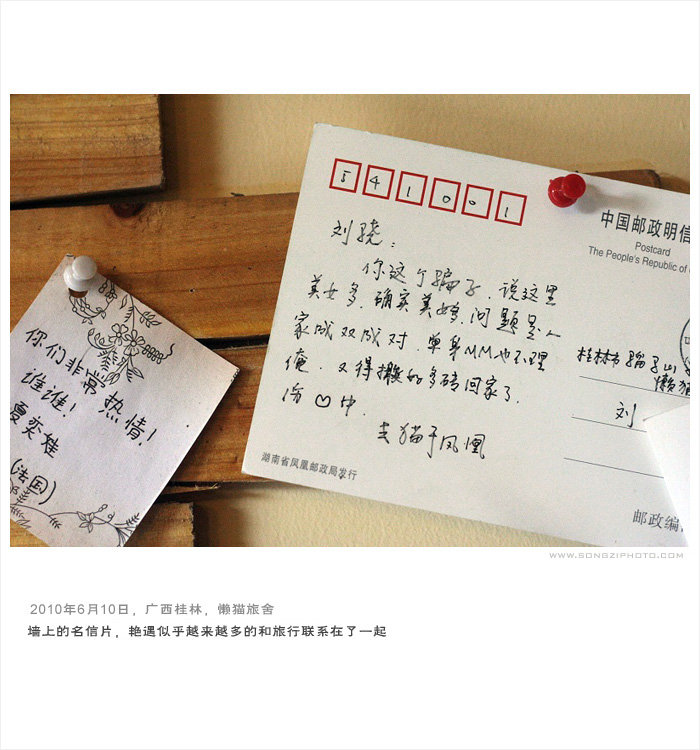 541001
中国邮政明信
Postcard
The People's Republic of
刘骁：
你这个骗子，说这里
美女多，确实美女多，问题是人
家成双成对，单身MM也不理
俺，又得搬好多砖回家了。
伤♡中。
去猫于凤凰
湖南省凤凰邮政局发行
桂林市骝子山
懒猫
刘
邮政编
你们非常热情！
谁谁！
夏奕雄
(法国)
WWW.SONGZIPHOTO.COM
2010年6月10日，广西桂林，懒猫旅舍
墙上的名信片，艳遇似乎越来越多的和旅行联系在了一起